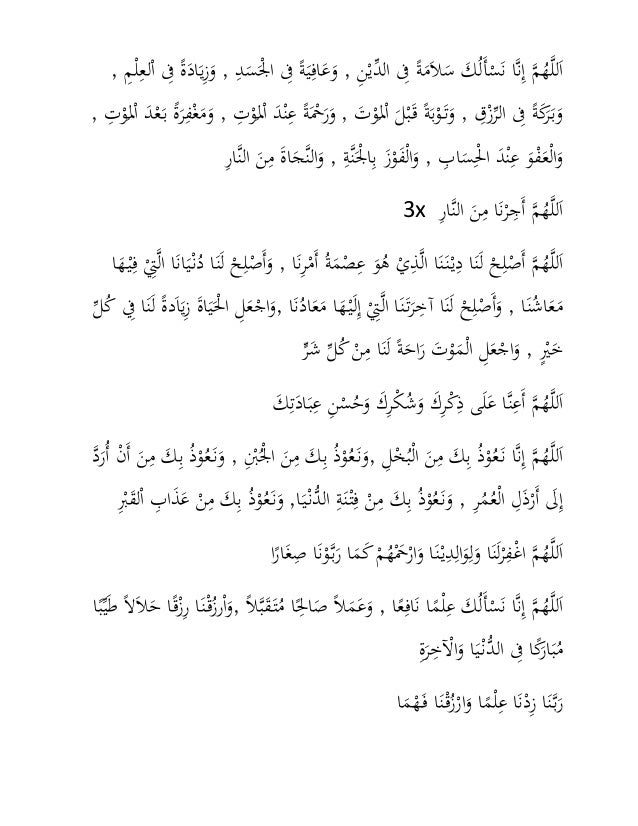 اَللَّهُمَّ إِنَّا نَسْأَلُكَ سَلاَمَةً فِى الدِّيْنِ , وَعَافِيَةً فِى الْجَسَدِ , وَزِيَادَةً فِى اْلعِلْمِ ,
وَبَرَكَةً فِى الرِّزْقِ , وَتَوْبَةً قَبْلَ اْلمَوْتَ , وَرَحْمَةً عِنْدَ اْلمَوْتِ , وَمَغْفِرَةً بَعْدَ اْلمَوْتِ ,
وَالْعَفْوَ عِنْدَ الْحِسَابِ , وَالْفَوْزَ بِالْجَنَّةِ , وَالنَّجَاةَ مِنَ النَّارِ
اَللَّهُمَّ أَجِرْنَا مِنَ النَّارِ 3x
اَللَّهُمَّ أَصْلِحْ لَنَا دِيْنَنَا الَّذِيْ هُوَ عِصْمَةُ أَمْرِنَا , وَأَصْلِحْ لَنَا دُنْيَانَا الَّتِيْ فِيْهَا
مَعَاشُنَا , وَأَصْلِحْ لَنَا آخِرَتَنَا الَّتِيْ إِلَيْهَا مَعَادُنَا ,وَاجْعَلِ الْحَيَاةَ زِيَادةً لَنَا فِي كُلِّ
خَيْرٍ , وَاجْعَلِ الْمَوْتَ رَاحَةً لَنَا مِنْ كُلِّ شَرٍّ
اَللَّهُمَّ أَعِنَّا عَلَى ذِكْرِكَ وَشُكْرِكَ وَحُسْنِ عِبَادَتِكَ
اَللَّهُمَّ إِنَّا نَعُوْذُ بِكَ مِنَ الْبُخْلِ ,وَنَعُوْذُ بِكَ مِنَ الْجُبْنِ , وَنَعُوْذُ بِكَ مِنَ أَنْ أُرَدَّ
إِلَى أَرْذَلِ الْعُمُرِ , وَنَعُوْذُ بِكَ مِنْ فِتْنَةِ الدُّنْيَا, وَنَعُوْذُ بِكَ مِنْ عَذَابِ اْلقَبْرِ
اَللَّهُمَّ اغْفِرْلَنَا وَلِوَالِدِيْنَا وَارْحَمْهُمْ كَمَا رَبَّوْنَا صِغَارًا
اَللَّهُمَّ إِنَّا نَسْأَلُكَ عِلْمًا نَافِعًا , وَعَمَلاً صَالِحًا مُتَقَبَّلاً ,وَاْرزُقْنَا رِزْقًا حَلاَلاً طَيِّبًا
مُبَارَكًا فِى الدُّنْيَا وَالْآخِرَةِ
رَبَّنَا زِدْنَا عِلْمًا وَارْزُقْنَا فَهْمَا